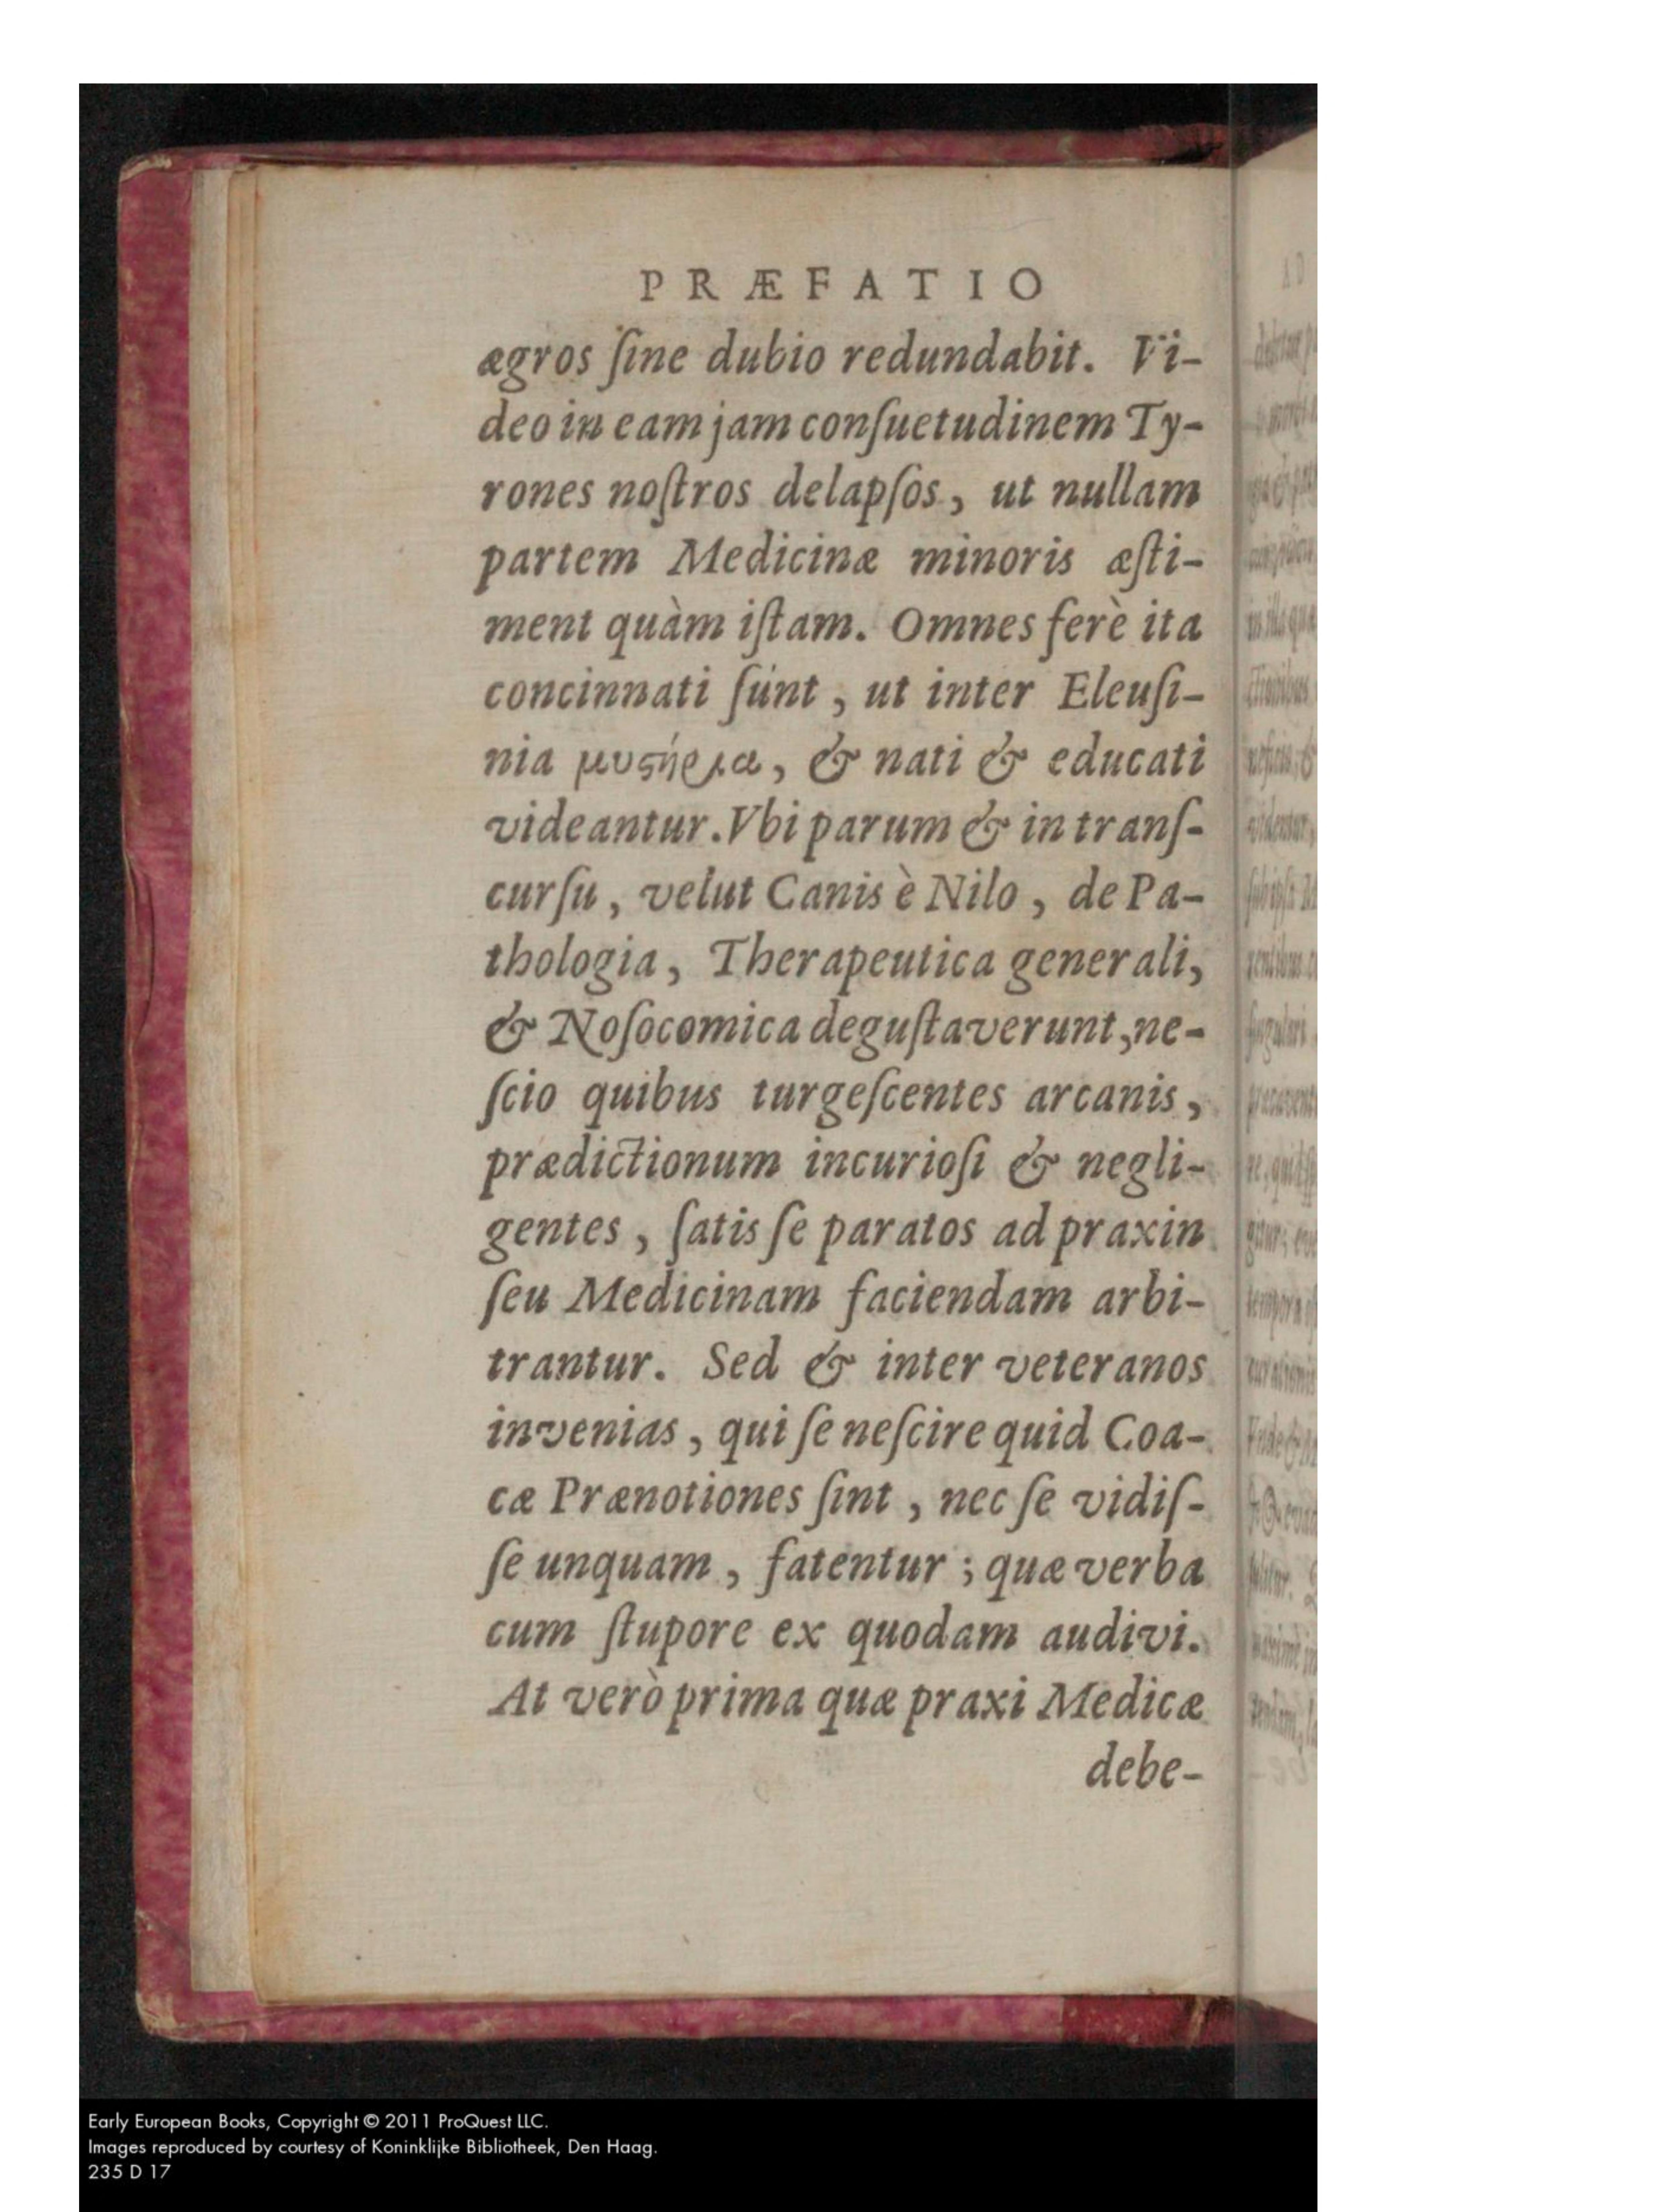 PRÆFATIO
ægros ſine dubio redundabit. Vi-
deo in eam jam conſuetudinem Ty-
rones noſtros delapſos, ut nullam
partem Medicinæ minoris æſti-
ment quàm iſtam. Omnes ferè ita
concinnati ſunt, ut inter Eleuſi-
nia μυϛήρια, & nati & educati
videantur. Vbi parum & in tranſ-
curſu, velut Canis è Nilo, de Pa-
thologia, Therapeutica generali,
& Noſocomica deguſtaverunt, ne-
ſcio quibus turgeſcentes arcanis,
prædictionum incurioſi & negli-
gentes, ſatis ſe paratos ad praxin
ſeu Medicinam faciendam arbi-
trantur. Sed & inter veteranos
invenias, qui ſe neſcire quid Coa-
cæ Prænotiones ſint, nec ſe vidiſ-
ſe unquam, fatentur; quæ verba
cum ſtupore ex quodam audivi.
At verò prima quæ praxi Medicæ
debe-
Early European Books, Copyright © 2011 ProQuest LLC.
Images reproduced by courtesy of Koninklijke Bibliotheek, Den Haag.
235 D 17